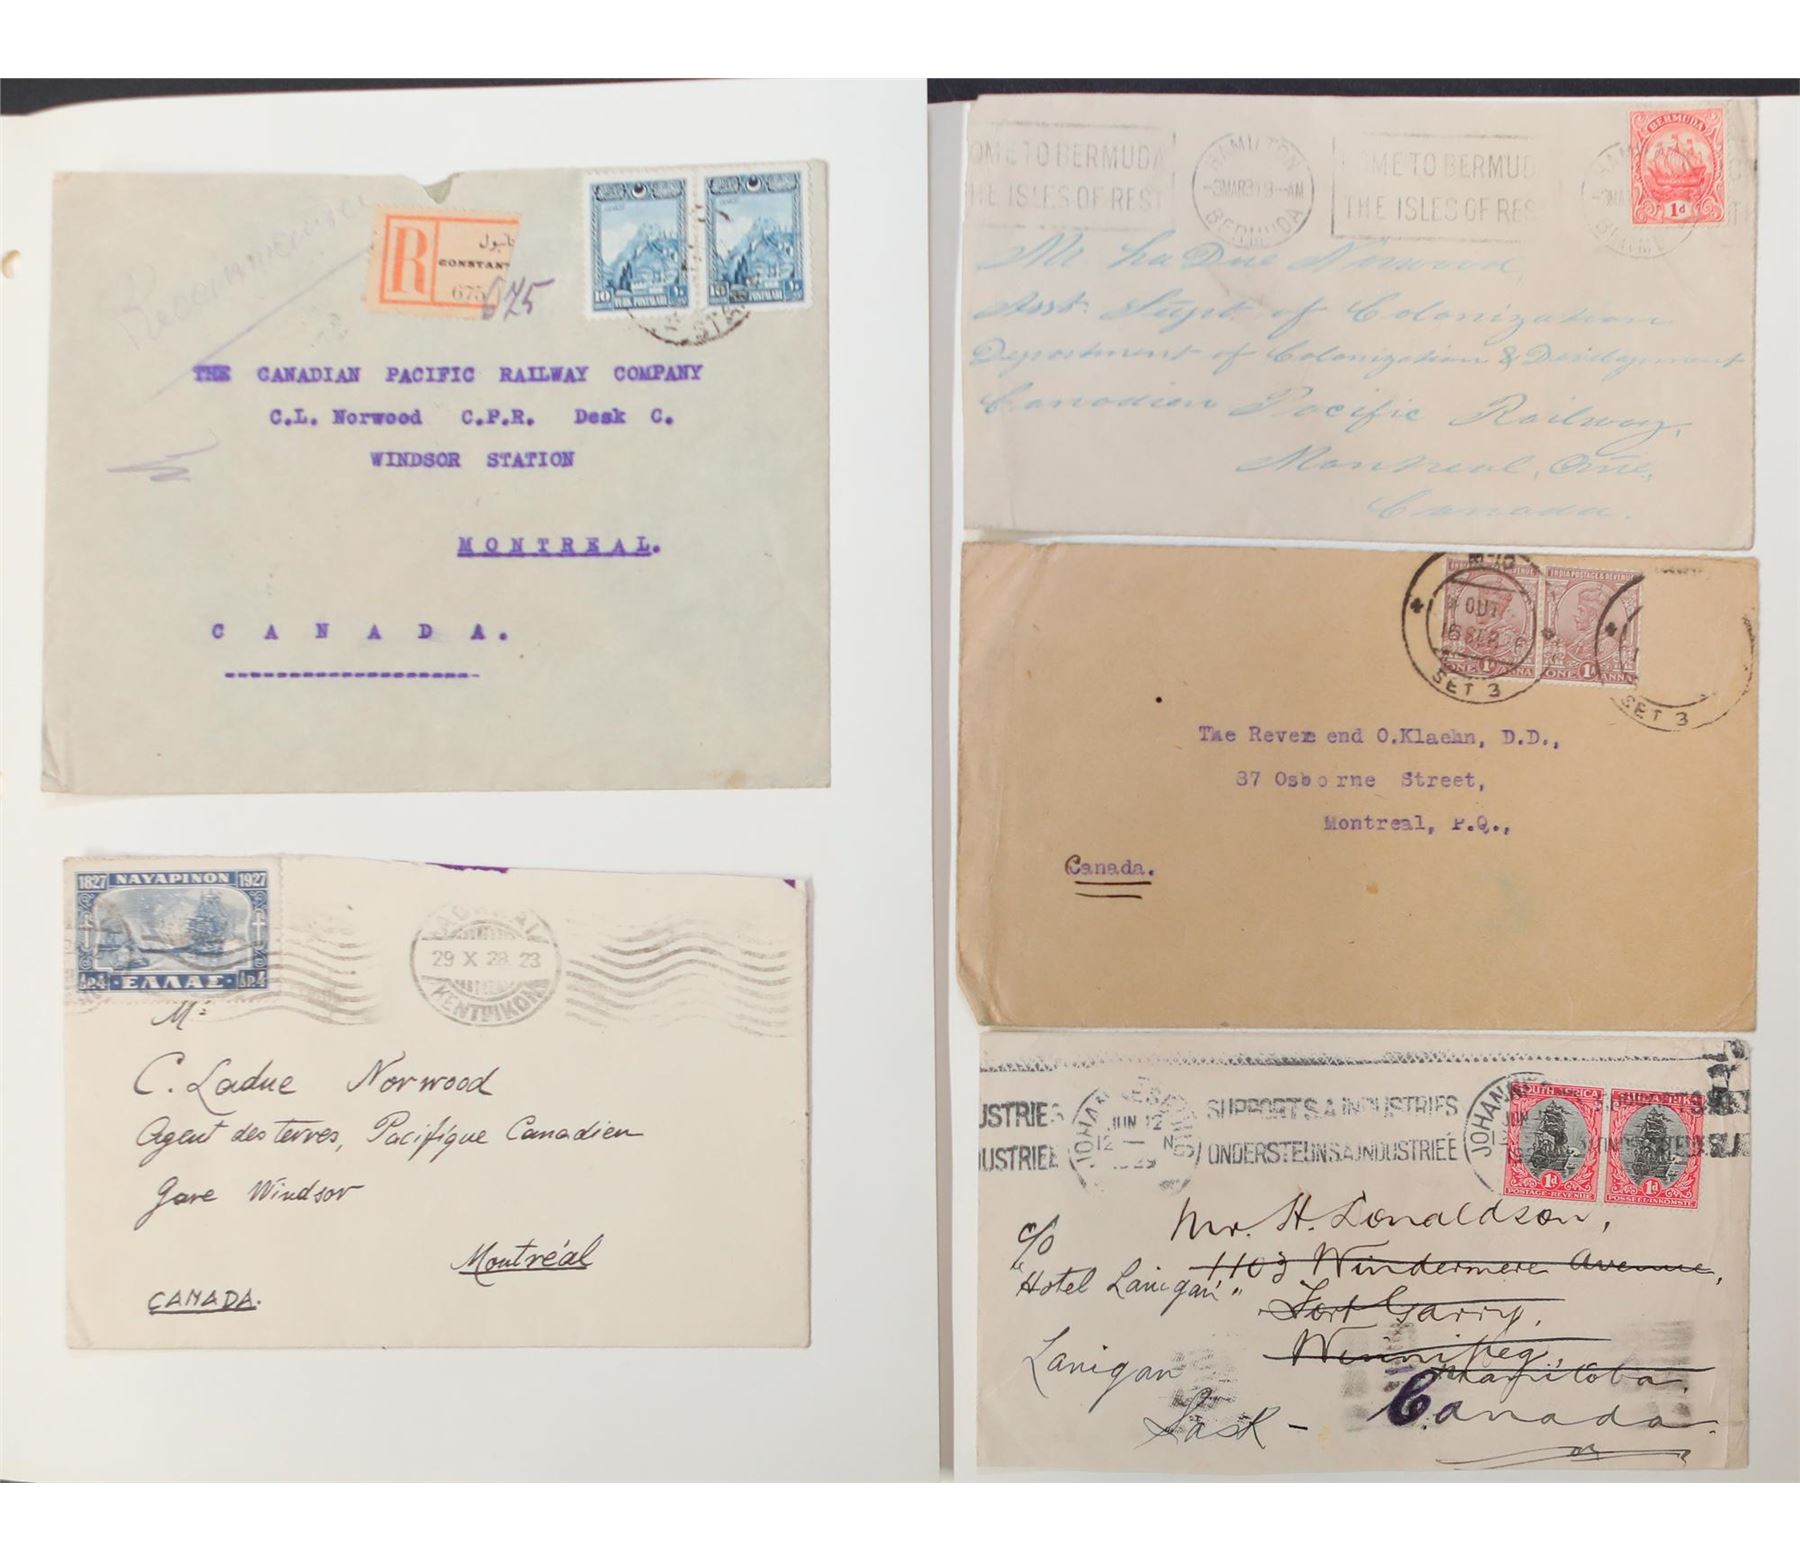 Recommandée
R
CONSTAN
675
675
10
TÜRK POSTALARI
10
TÜRK POSTALARI
THE CANADIAN PACIFIC RAILWAY COMPANY
C.L. Norwood C.P.R. Desk C.
WINDSOR STATION
MONTREAL.
CANADA.
1827 ΝΑΥΑΡΙΝΟΝ 1927
ΔΡ.4 ·ΕΛΛΑΣ· ΔΡ.4
29 X 28 23
ΚΕΝΤΡΙΚΟΝ
Mr
C. Ladue Norwood
Agent des terres, Pacifique Canadien
Gare Windsor
Montréal
CANADA.
OME TO BERMUDA
THE ISLES OF REST
HAMILTON
-3MAR30 9-AM
BERMUDA
COME TO BERMUD
THE ISLES OF RES
BERMUDA
1d
Mr. La Due Norwood,
Asst. Supt. of Colonization
Department of Colonization & Development
Canadian Pacific Railway,
Montreal, Que.,
Canada.
INDIA POSTAGE & REVENUE
ONE 1A ANNA
ONE 1A ANNA
OUT
16 SEP
SET 3
SET 3
The Reverend O.Klaehn, D.D.,
37 Osborne Street,
Montreal, P.Q.,
Canada.
USTRIES
DUSTRIEË
JUN 12
12 — N
1929
SUPPORT S.A. INDUSTRIES
ONDERSTEUN S.A. INDUSTRIEË
JOHANN
SOUTH AFRICA
1d
POSTAGE-REVENUE
SUIDAFRIKA
1d
POSSEEL-INKOMSTE
Mr. H. Donaldson,
c/o
1103 Windermere Avenue,
"Hotel Lanigan"
Fort Garry,
Winnipeg,
Manitoba.
Lanigan
Canada.
Sask -